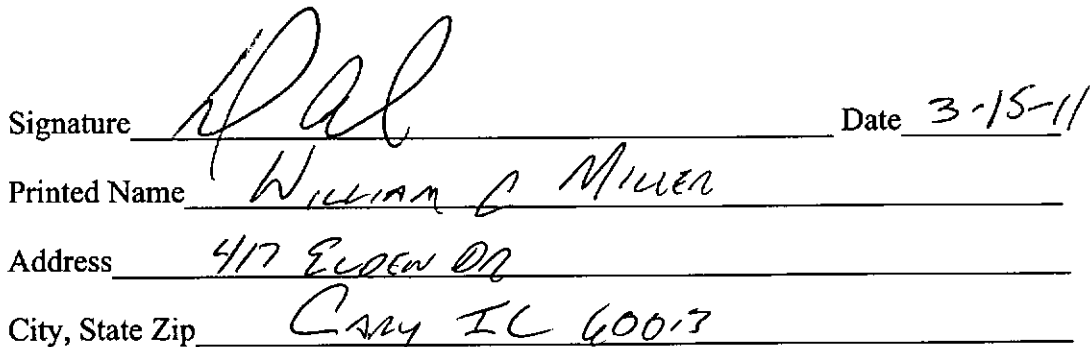 Signature Date 3-15-11
Printed Name WILLIAM C MILLER
Address 417 ELDEN DR
City, State Zip CARY IL 60013